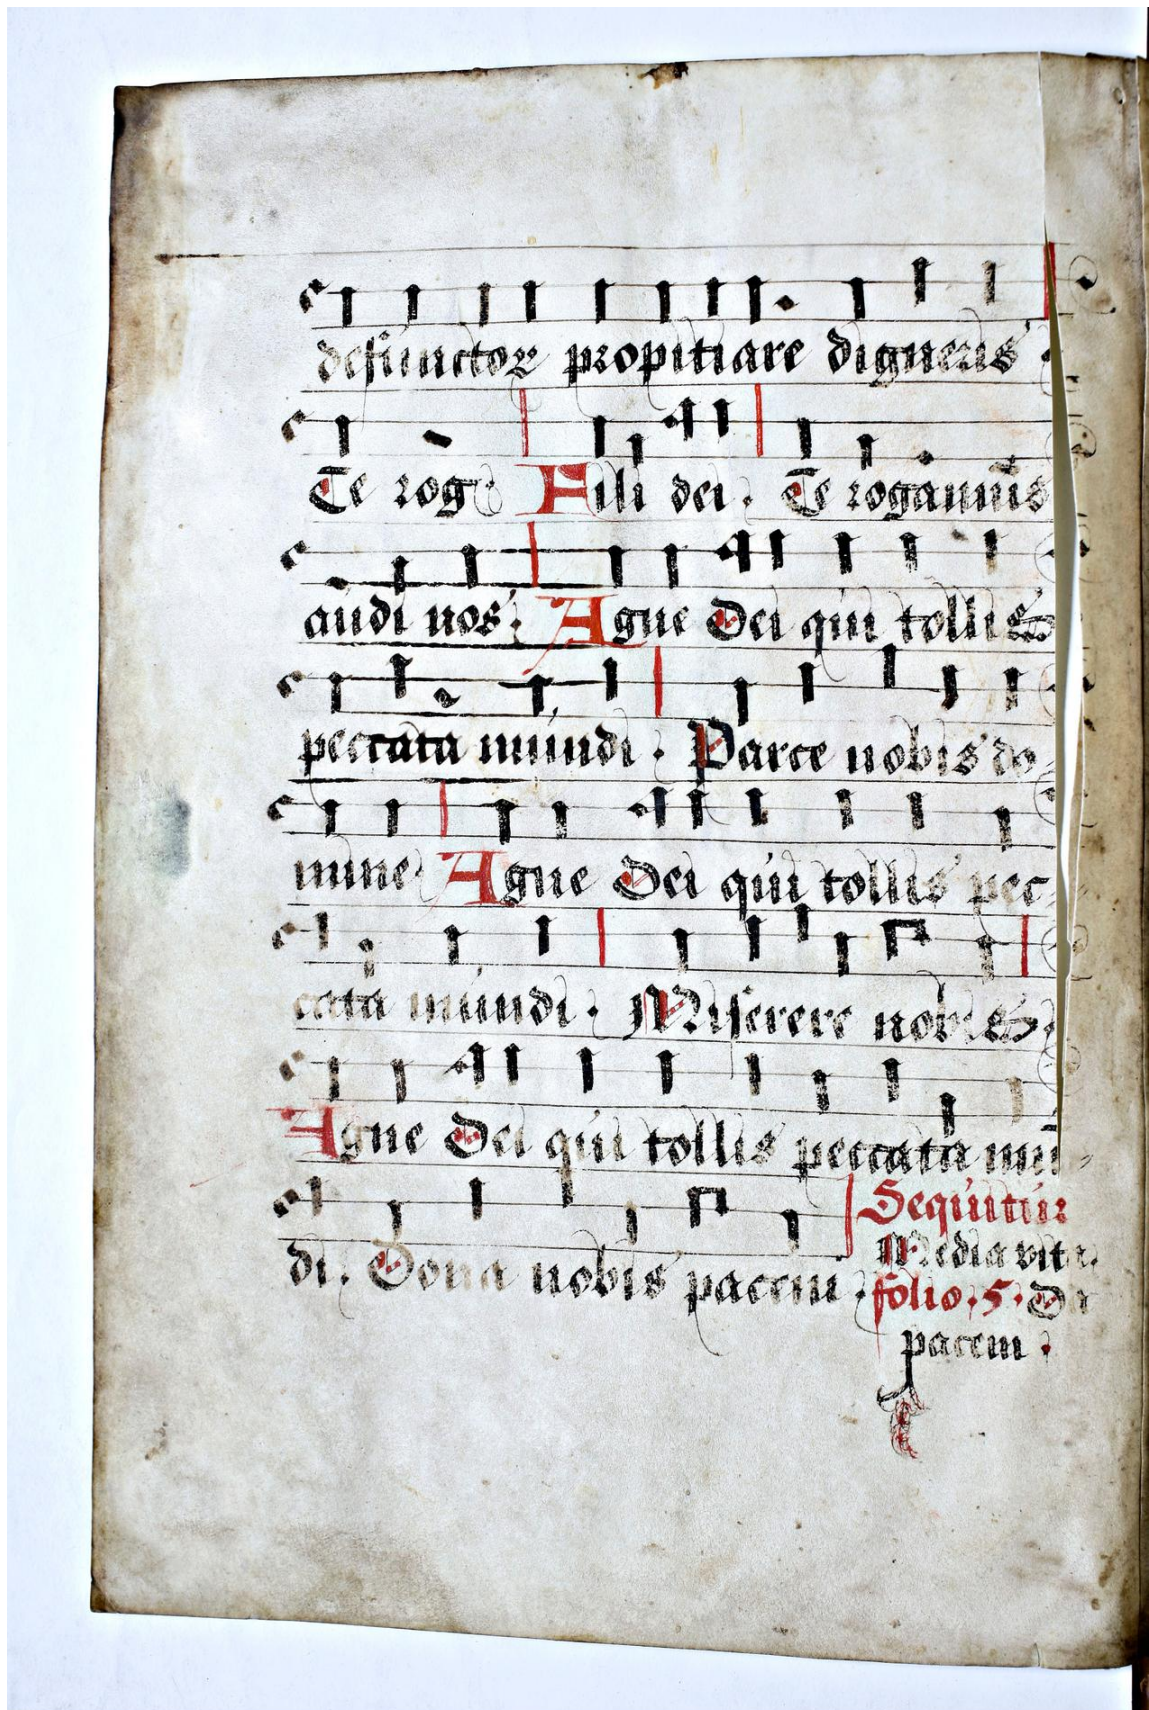 defunctoꝝ propitiare digneris
Te rog Fili dei. Te rogamus
audi nos: Agne Dei qui tollis
peccata mundi. Parce nobis do
mine Agne Dei qui tollis pec
cata mundi. Miserere nobis.
Agne Dei qui tollis peccata mū
di. Dona nobis pacem.
Sequitur
Media vita.
folio. 5. Da
pacem.